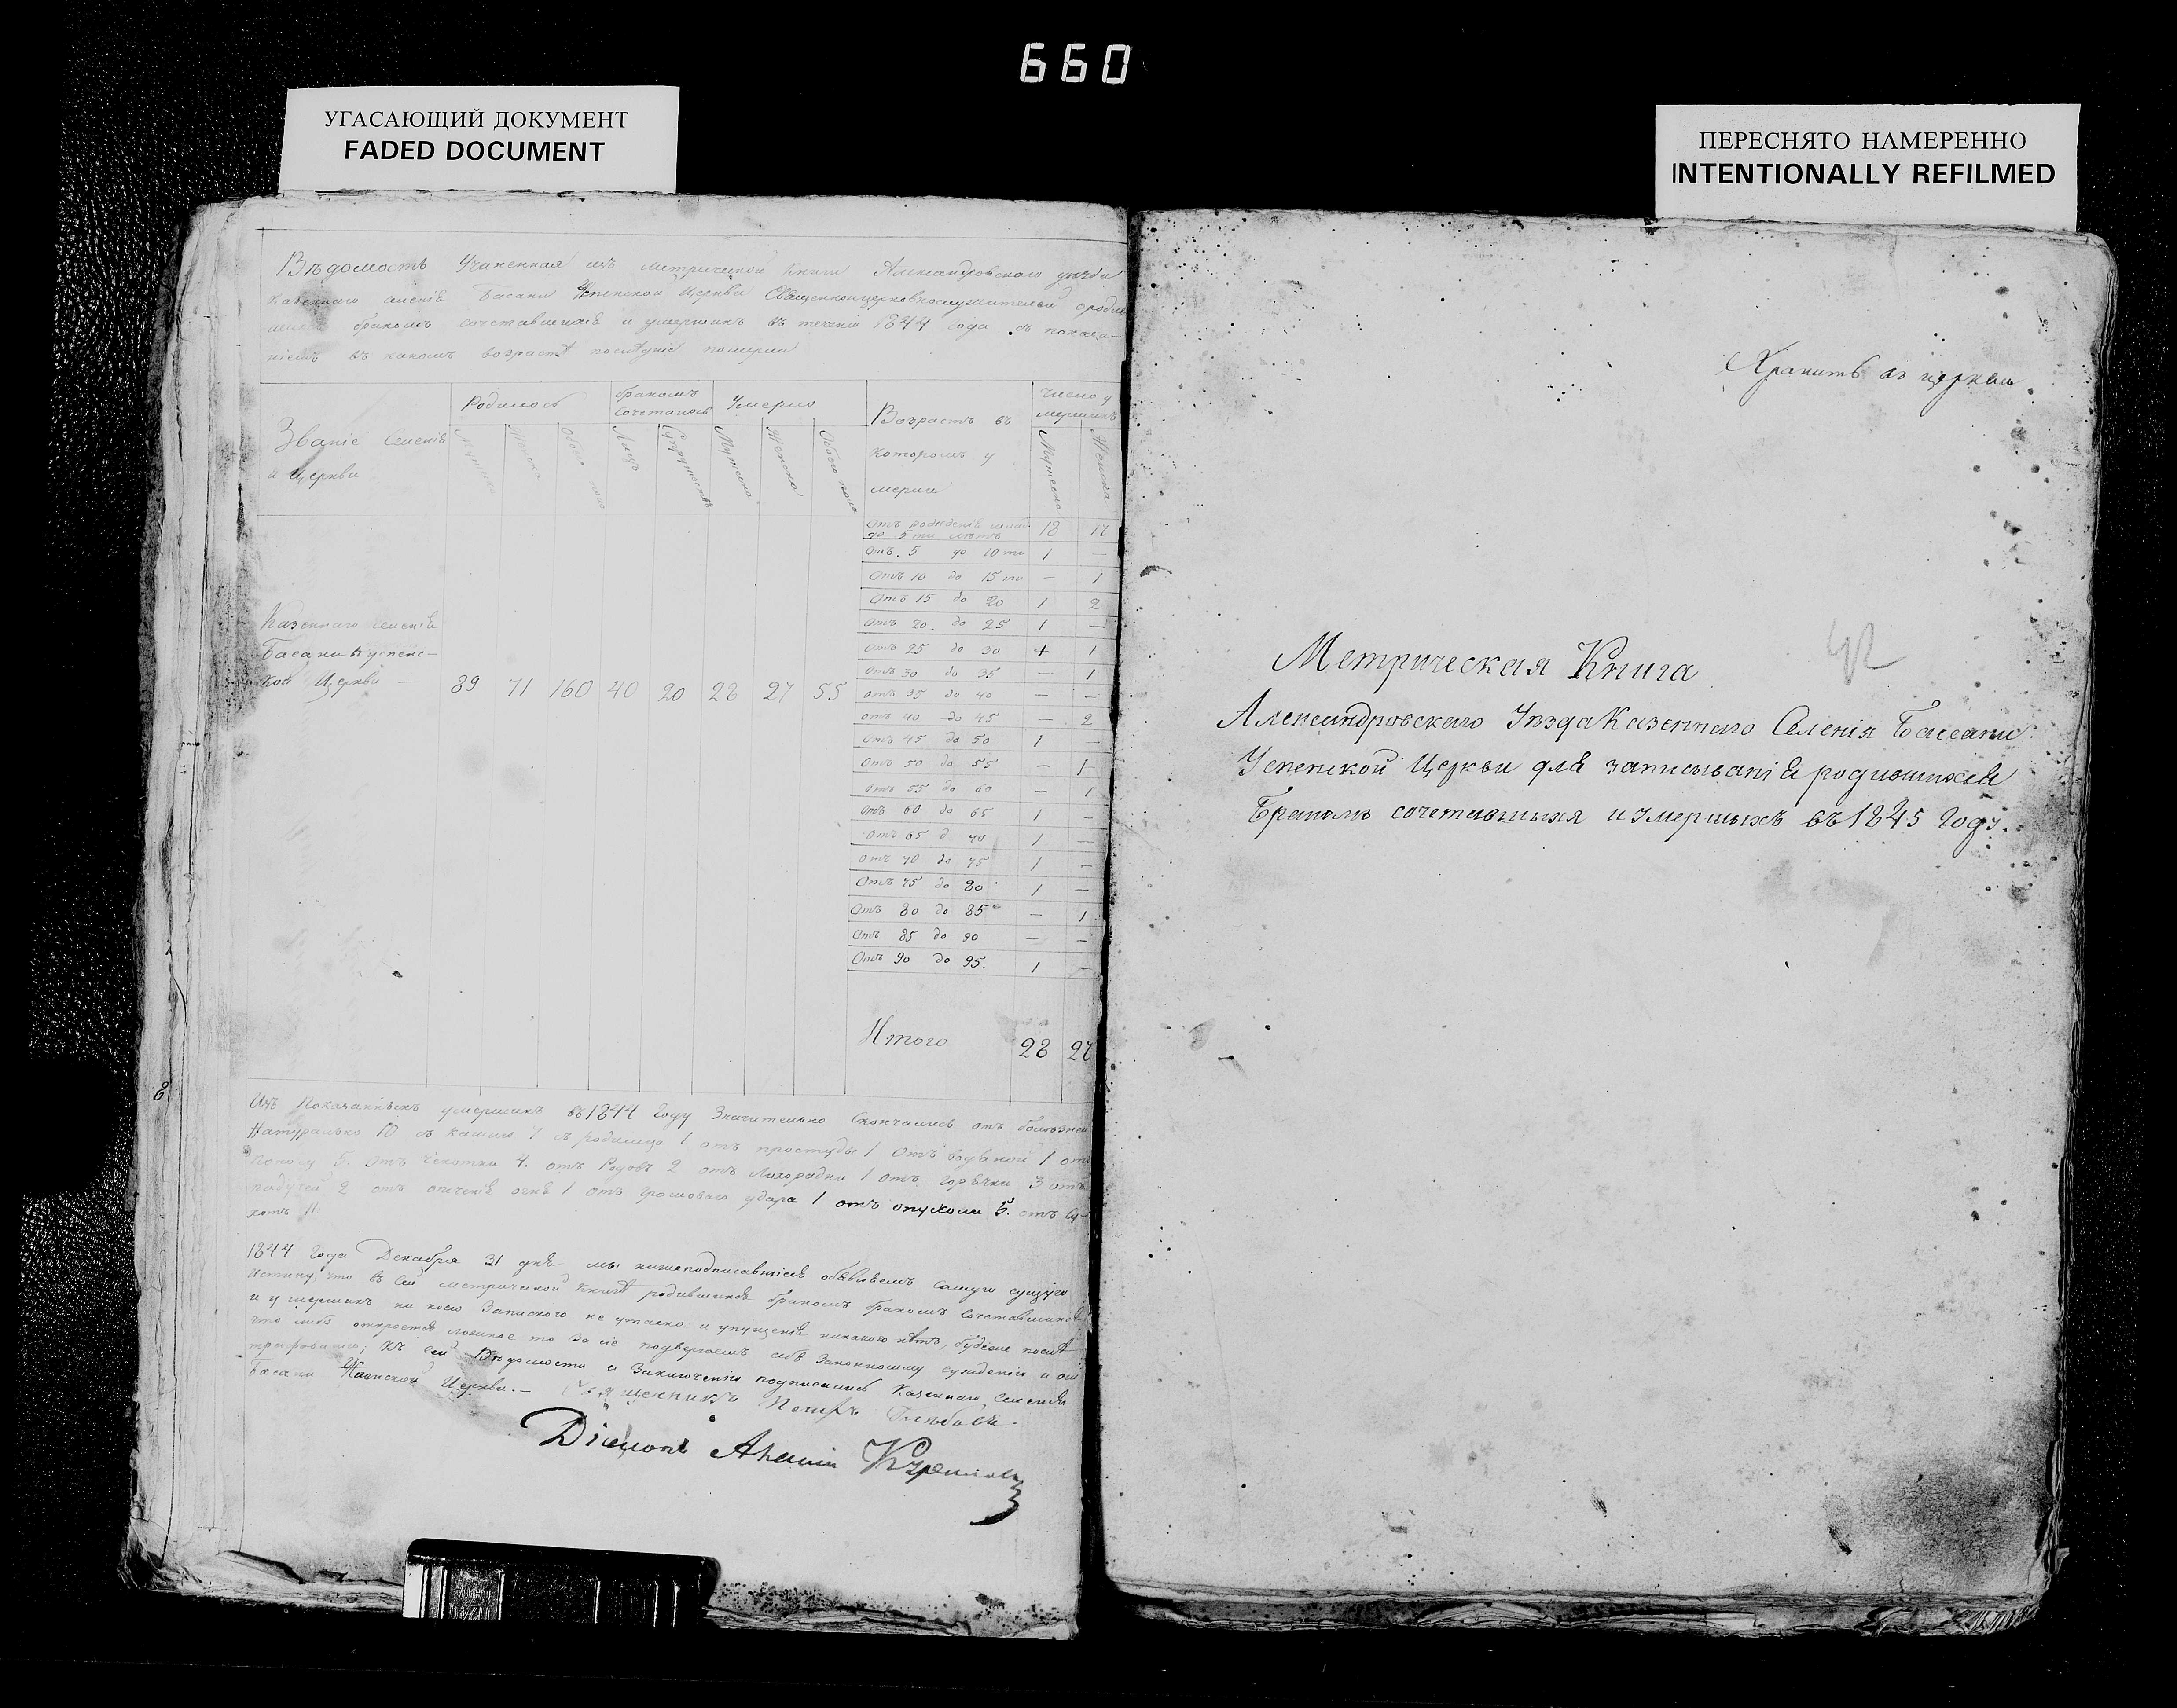 660
УГАСАЮЩИЙ ДОКУМЕНТ
FADED DOCUMENT
ПЕРЕСНЯТО НАМЕРЕННО
INTENTIONALLY REFILMED
Вѣдомость Учиненная изъ метрической книги Александровского уезда
Казеннаго селенія Басани Успенской Церкви Священноцерковнослужителми
бракомъ сочетавшихся и умершихъ въ теченіи 1844 года съ показа-
ніемъ въ какомъ возрастѣ померли
Званіе Селенія
и Церкви
Родилось
бракомъ
сочеталось
Умерло
Возрастъ въ
которомъ у
мерли
число у
мершихъ
Мужеска
Женска
Обоего пола
Лицъ
Супружествъ
Мужеска
Женска
Обоего пола
Мужеска
Женска
Отъ рожденія
до 5 ти лѣтъ 18 17
Отъ 5 до 10 ти 1 —
Отъ 10 до 15 ти — 1
Отъ 15 до 20 1 2
Отъ 20 до 25 1 —
Отъ 25 до 30 + 1
Отъ 30 до 35 — 1
отъ 35 до 40 — —
отъ 40 до 45 — 2
Отъ 45 до 50 1 —
Отъ 50 до 55 — 1
Отъ 55 до 60 — 1
Отъ 60 до 65 1 —
Отъ 65 д 70 1 —
отъ 70 до 75 1 —
Отъ 75 до 80 1 —
Отъ 80 до 85 — 1
Отъ 85 до 90 — —
Отъ 90 до 95. 1 —
Казеннаго Селенія
Басани Успенс-
кой Церкви — 89 71 160 40 20 28 27 55
Итого 28 27
Изъ Показанныхъ умершихъ въ 1844 Году Значительно Скончались отъ болѣзней
Натурально 10 съ кашлю 7 съ родимца 1 отъ простуды 1 Отъ водяной 1 отъ
поносу 5. Отъ Чехотки 4. отъ Родовъ 2 отъ Лихорадки 1 отъ горѣчки 3 отъ
падучей 2 отъ огнѣ 1 отъ удара 1 отъ опухоли 5. отъ Су-
хотъ 11
1844 Года Декабря 31 днѣ мы нижеподписавшіеся объявляемъ самую сущую
Истину, что въ Сей метрической Книгѣ родившихся бракомъ бракомъ Сочетавшихся
и умершихъ ни кого Записаного не утаено и упущенія никакого нѣтъ, будеже послѣ
что либо откроется ложное то за сіе подвергаемъ себя Законному сужденію и
къ Сей Вѣдомости и Заключенію подписались Казеннаго Селенія
Басани Успенской Церкви. — Священникъ Петръ
Хранить въ церкви
42
Метрическая Книга
Александровскаго Уѣзда Казеннаго Селенія Басани
Успенской Церкви для записыванія родившихся
Бракомъ сочетавшихся и умершихъ въ 1845 Году.